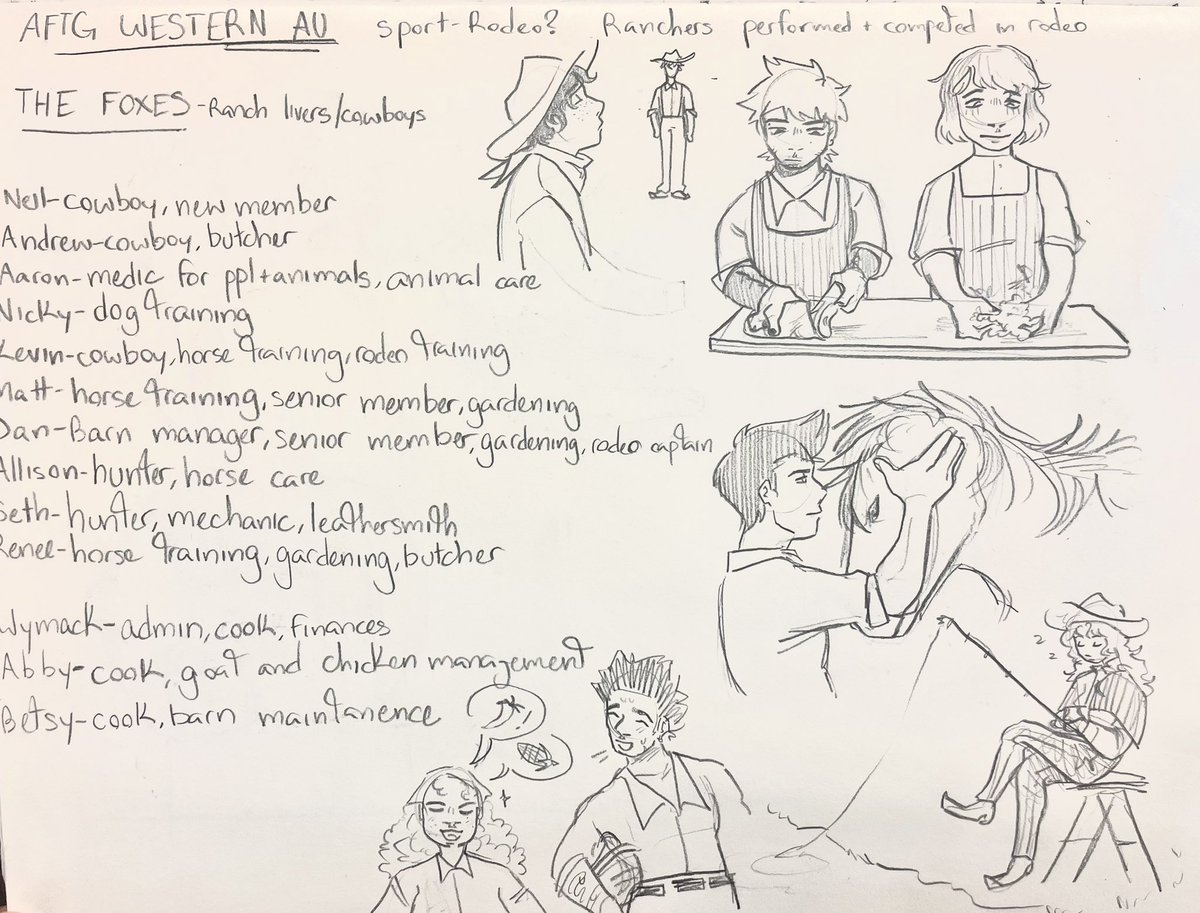 AFTG WESTERN AU sport-Rodeo? Ranchers performed + competed in rodeo
THE FOXES-Ranch livers/cowboys
Neil-cowboy, new member
Andrew-cowboy, butcher
Aaron-medic for ppl+animals, animal care
Nicky-dog training
Kevin-cowboy, horse training, rodeo training
Matt-horse training, senior member, gardening
Dan-Barn manager, senior member, gardening, rodeo captain
Allison-hunter, horse care
Seth-hunter, mechanic, leathersmith
Renee-horse training, gardening, butcher
Wymack-admin, cook, finances
Abby-cook, goat and chicken management
Betsy-cook, barn maintanence
z
z